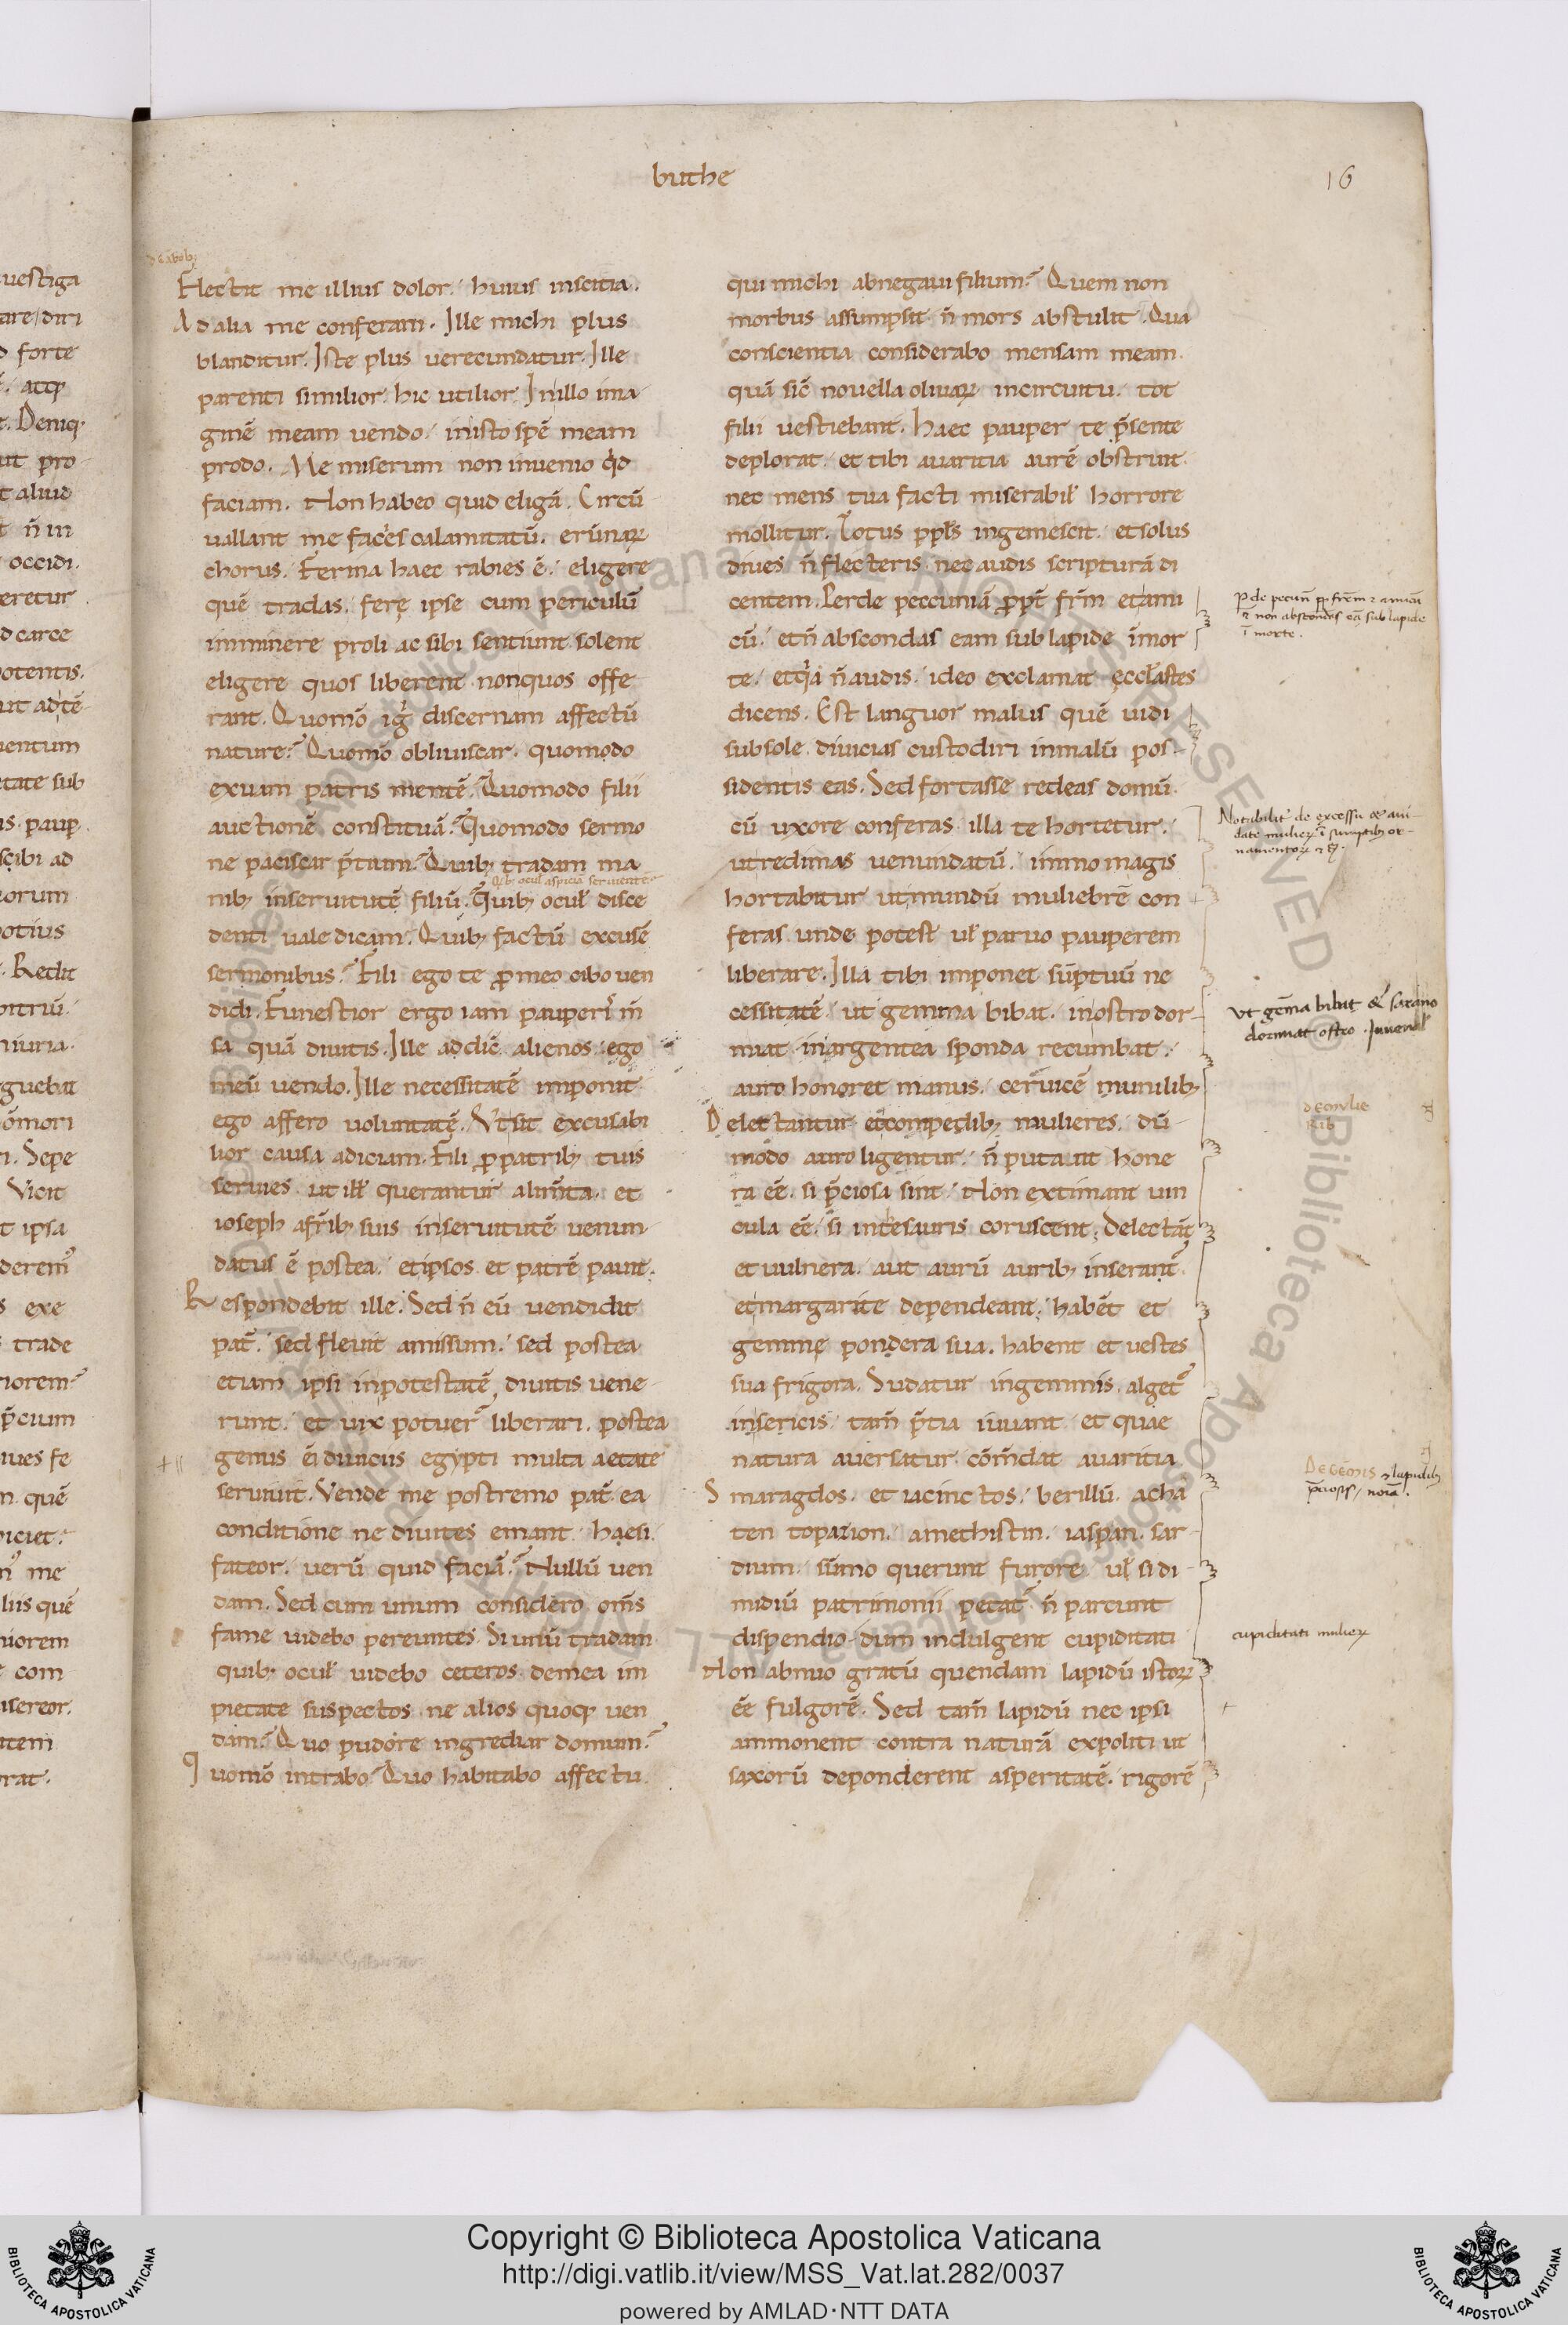 buthe
16
Flectit me illius dolor. huius inscitia.
Ad alia me conferam. Ille michi plus
blanditur. Iste plus uerecundatur. Ille
parenti similior. hic utilior. Inillo ima
ginē meam uendo. inisto spē meam
prodo. Me miserum non inuenio qd
faciam. Non habeo quid eligā. Circū
uallant me facies calamitatū. erūnaꝝ
chorus. Ferina haec rabies ē. eligere
quē tradas. ferę ipse cum periculū
imminere proli ac sibi sentiunt. solent
eligere quos liberent nonquos offe
rant. Quomō igͥ discernam affectū
nature? Quomō obliuiscar. quomodo
exuam patris mentē? Quomodo filii
auctionē constituā? Quomodo sermo
ne paciscar p̄tium? Quibꝫ tradam ma
nibꝫ inseruitutē filiū? Quibꝫ oculꝭ disce
denti uale dicam. Quibꝫ factū excusē
sermonibus? Fili ego te ꝓ meo cibo uen
didi. Funestior ergo iam pauperiꝰ m̄
sa quā diuitis. Ille ad diē alienos. ego
meū uendo. Ille necessitatē imponit
ego affero uoluntatē. Ut sit excusabi
lior causa adiciam. Fili ꝓ patribꝫ tuis
seruies ut illꝭ querantur alim̄ta. et
ioseph afr̄ibꝫ suis inseruitutē uenun
datus ē postea. etipsos et patrē pauit.
Respondebit ille. Sed n̄ eū uendidit
pat̄. sed fleuit amissum. sed postea
etiam ipsi inpotestatē diuitis uene
runt. et uix potuer̄ liberari. postea
genus ei diuiciis egypti multa aetate
seruiuit. Vende me postremo pat̄. ea
conditione ne diuites emant. haesi.
fateor. uerū quid faciā? Nullū uen
dam. Sed cum unum considero om̄s
fame uidebo pereuntes. Si unū tradam
quibꝫ oculꝭ uidebo ceteros demea im
pietate suspectos ne alios quoqꝫ uen
dam? Quo pudore ingrediar domum?
Quomō intrabo? Quo habitabo affectu.
qui michi abnegaui filium? Quem non
morbus assumpsit. n̄ mors abstulit. Qua
conscientia considerabo mensam meam
quā sic̄ nouella oliuaꝝ incircuitu. tot
filii uestiebant. haec pauper te p̄sente
deplorat. et tibi auaritia aurē obstruit
nec mens tua facti miserabilꝭ horrore
mollitur. Totus ppl̄s ingemescit. et solus
diues n̄ flecteris. nec audis scripturā di
centem. Perde peccuniā ꝓpt̄ fr̄m et ami
cū. et n̄ abscondas eam sub lapide īmor
te. etqͣ n̄ audis. ideo exclamat eccl̄astes
dicens. Est languor malus quē uidi
subsole. diuicias custodiri inmalū pos
sidentis eas. Sed fortasse redeas domū.
cū uxore conferas. illa te hortetur.
utredimas uenundatū. immo magis
hortabitur ut mundū muliebrē con
feras unde potest ul̄ paruo pauperem
liberare. Illa tibi imponet sūptuū ne
cessitatē. ut gemma bibat. inostro dor
miat. inargentea sponda recumbat.
auro honoret manus. ceruicē munilibꝫ
Delectantur et compedibꝫ mulieres. dū
modo auro ligentur. n̄ putant hone
ra eē. si p̄ciosa sint. Non extimant uin
cula eē. si intesauris coruscent. Delectāt
et uulnera. aut aurū auribꝫ inserant
et margarite dependeant. habēt et
gemmę pondera sua. habent et uestes
sua frigora. Sudatur ingemmis. alget
insericis. tam̄ p̄tia iuuant. et quae
natura auersatur. cōm̄dat auaritia
Smaragdos. et iacinctos. berillū. acha
ten topazion. amethistin. iaspin. sar
dium. sūmo querunt furore. ul̄ si di
midiū patrimonii petat̄. n̄ parcunt
dispendio. dum indulgent cupiditati
Non abnuo gratū quendam lapidū istoꝝ
ēe fulgorē. Sed tam̄ lapidū nec ipsi
ammonent contra naturā expoliti ut
saxorū deponderent asperitatē. rigorē
ꝑde pecun̄ ꝓp frēm ⁊ amicū
⁊ non abscondas eā sub lapide
ī morte.
Notabilit̄ de excessu
date mulieꝝ ī sumptibꝫ or-
namentoꝝ
Vt gēma bibat & sarano
dormiat ostro. Juvenal
De gēmis ⁊ lapidibꝫ
p̄ciosis noīa.
cupiditati mulieꝝ
vestiga
forte
Deniqꝫ
aliud
occidi.
potentis.
uentum
paup
scibi ad
potius
Sepe
Vicit
ipsa
exe
trade
quē
me
com
Copyright © Biblioteca Apostolica Vaticana
http://digi.vatlib.it/view/MSS_Vat.lat.282/0037
powered by AMLAD·NTT DATA
BIBLIOTECA APOSTOLICA VATICANA
BIBLIOTECA APOSTOLICA VATICANA